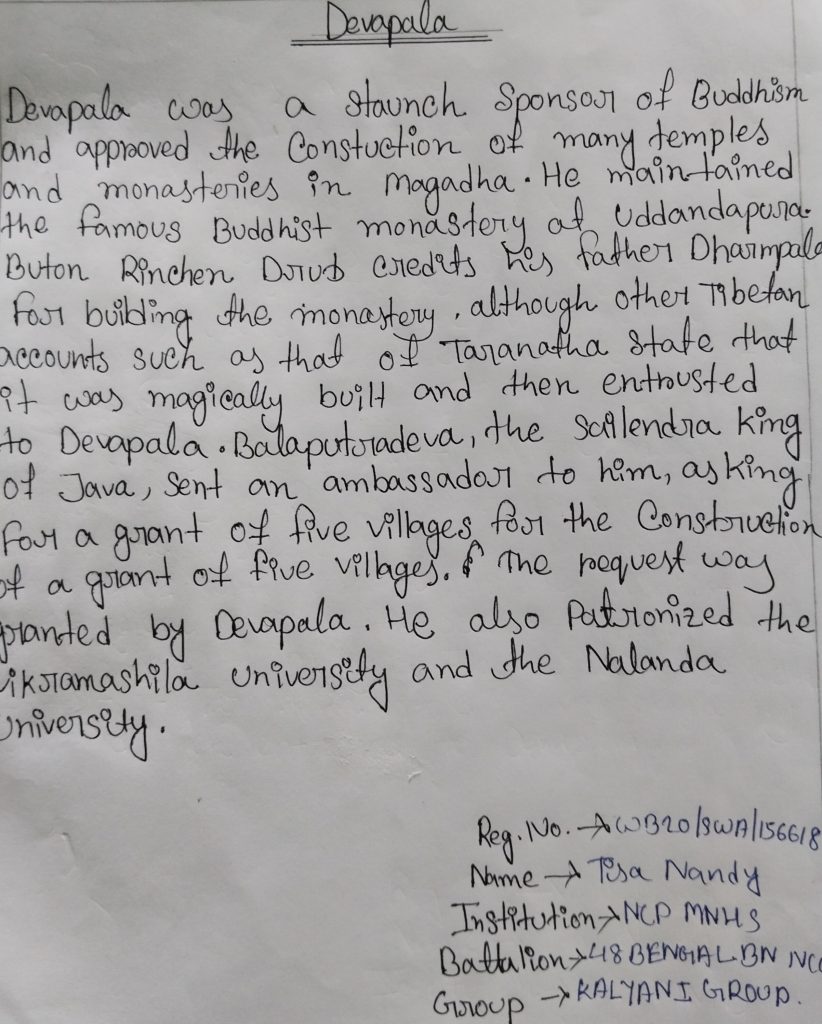 Devapala
Devapala was a staunch Sponsor of Buddhism
and approved the Constuction of many temples
and monasteries in Magadha. He maintained
the famous Buddhist monastery at Uddandapura.
Buton Rinchen Drub credits his father Dharmpala
for building the monastery, although other Tibetan
accounts such as that of Taranatha state that
it was magically built and then entrusted
to Devapala. Balaputradeva, the Sailendra King
of Java, sent an ambassador to him, asking
for a grant of five villages for the Construction
of a grant of five villages. The request was
granted by Devapala. He also Patronized the
ikramashila University and the Nalanda
University.
Reg. No. → WB20/SWA/156618
Name → Tisa Nandy
Institution → NCP MNHS
Battalion → 48 BENGAL BN NCC
Group → KALYANI GROUP.